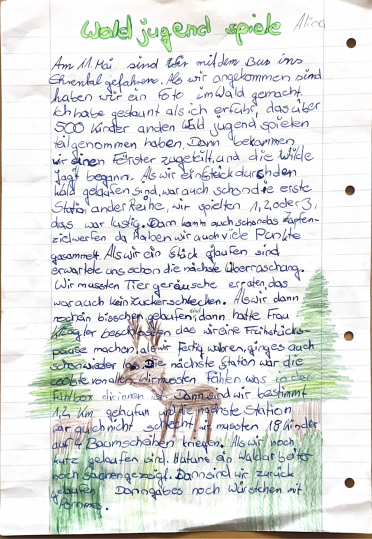 Waldjugendspiele Alina
Am 11. Mai sind wir mit dem Bus ins
Ehrental gefahrene. Als wir angekommen sind
haben wir ein Foto im Wald gemacht.
Ich habe gestaunt als ich erfuhr, das über
500 Kinder anden Wald jugend spielen
teilgenommen haben. Dann bekammen
wir einen Förster zugeteilt, und die Wilde
Jagt begann. Als wir ein Stück durch den
Wald gelaufen sind, war auch schon die erste
Station an der Reihe, wir spielten 1, 2, oder 3,
das war lustig. Dann kamm auch schon das Zapfen-
zielwerfen da haben wir auch viele Punkte
gesammelt. Als wir ein Stück glaufen sind
erwartete uns schon die nächste Überraschang.
Wir mussten Tiergeräusche erraten, das
war auch kein Zuckerschlecken. Als wir dann
noch ein bisschen gelaufen sind, dann hatte Frau
beschlossen das wir eine Frühstücks-
pause machen, als wir fertig waren, ging es auch
schon wieder los. Die nächste Station war die
coolste von allen. Wir musten Fühlen was in der
Fühlbox dirinnen ist. Dann sind wir bestimmt
1,4 Km gelaufen und die nächste Station
war auch nicht schlecht wir mussten 18 Kinder
auf 4 Baumscheiben kriegen. Als wir noch
kurz gelaufen sind. Hat uns ein Waldarbeiter
noch Sachen gezeigt. Dann sind wir zurück
gelaufen. Dann gab es noch Würstchen mit
Pommes.